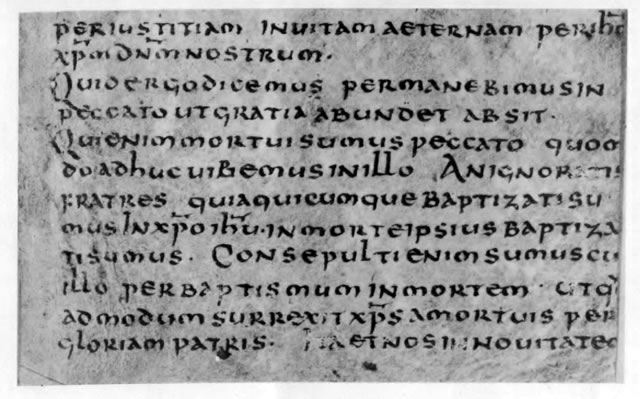 PERIUSTITIAM INUITAM AETERNAM PER ihū
xp̄m dn̄m NOSTRUM·
QUID ERGO DICEMUS PERMANEBIMUS IN
PECCATO UT GRATIA ABUNDET ABSIT·
QUI ENIM MORTUI SUMUS PECCATO QUOM
DO ADHUC UIBEMUS IN ILLO AN IGNORATIS
FRATRES QUIA QUICUMQUE BAPTIZATI SU
MUS IN xp̄o ihū· IN MORTE IPSIUS BAPTIZA
TI SUMUS· CONSEPULTI ENIM SUMUS CU
ILLO PER BAPTISMUM IN MORTEM UT Q
AD MODUM SURREXIT xp̄s A MORTUIS PER
GLORIAM PATRIS· ET NOS IN NOUITATE